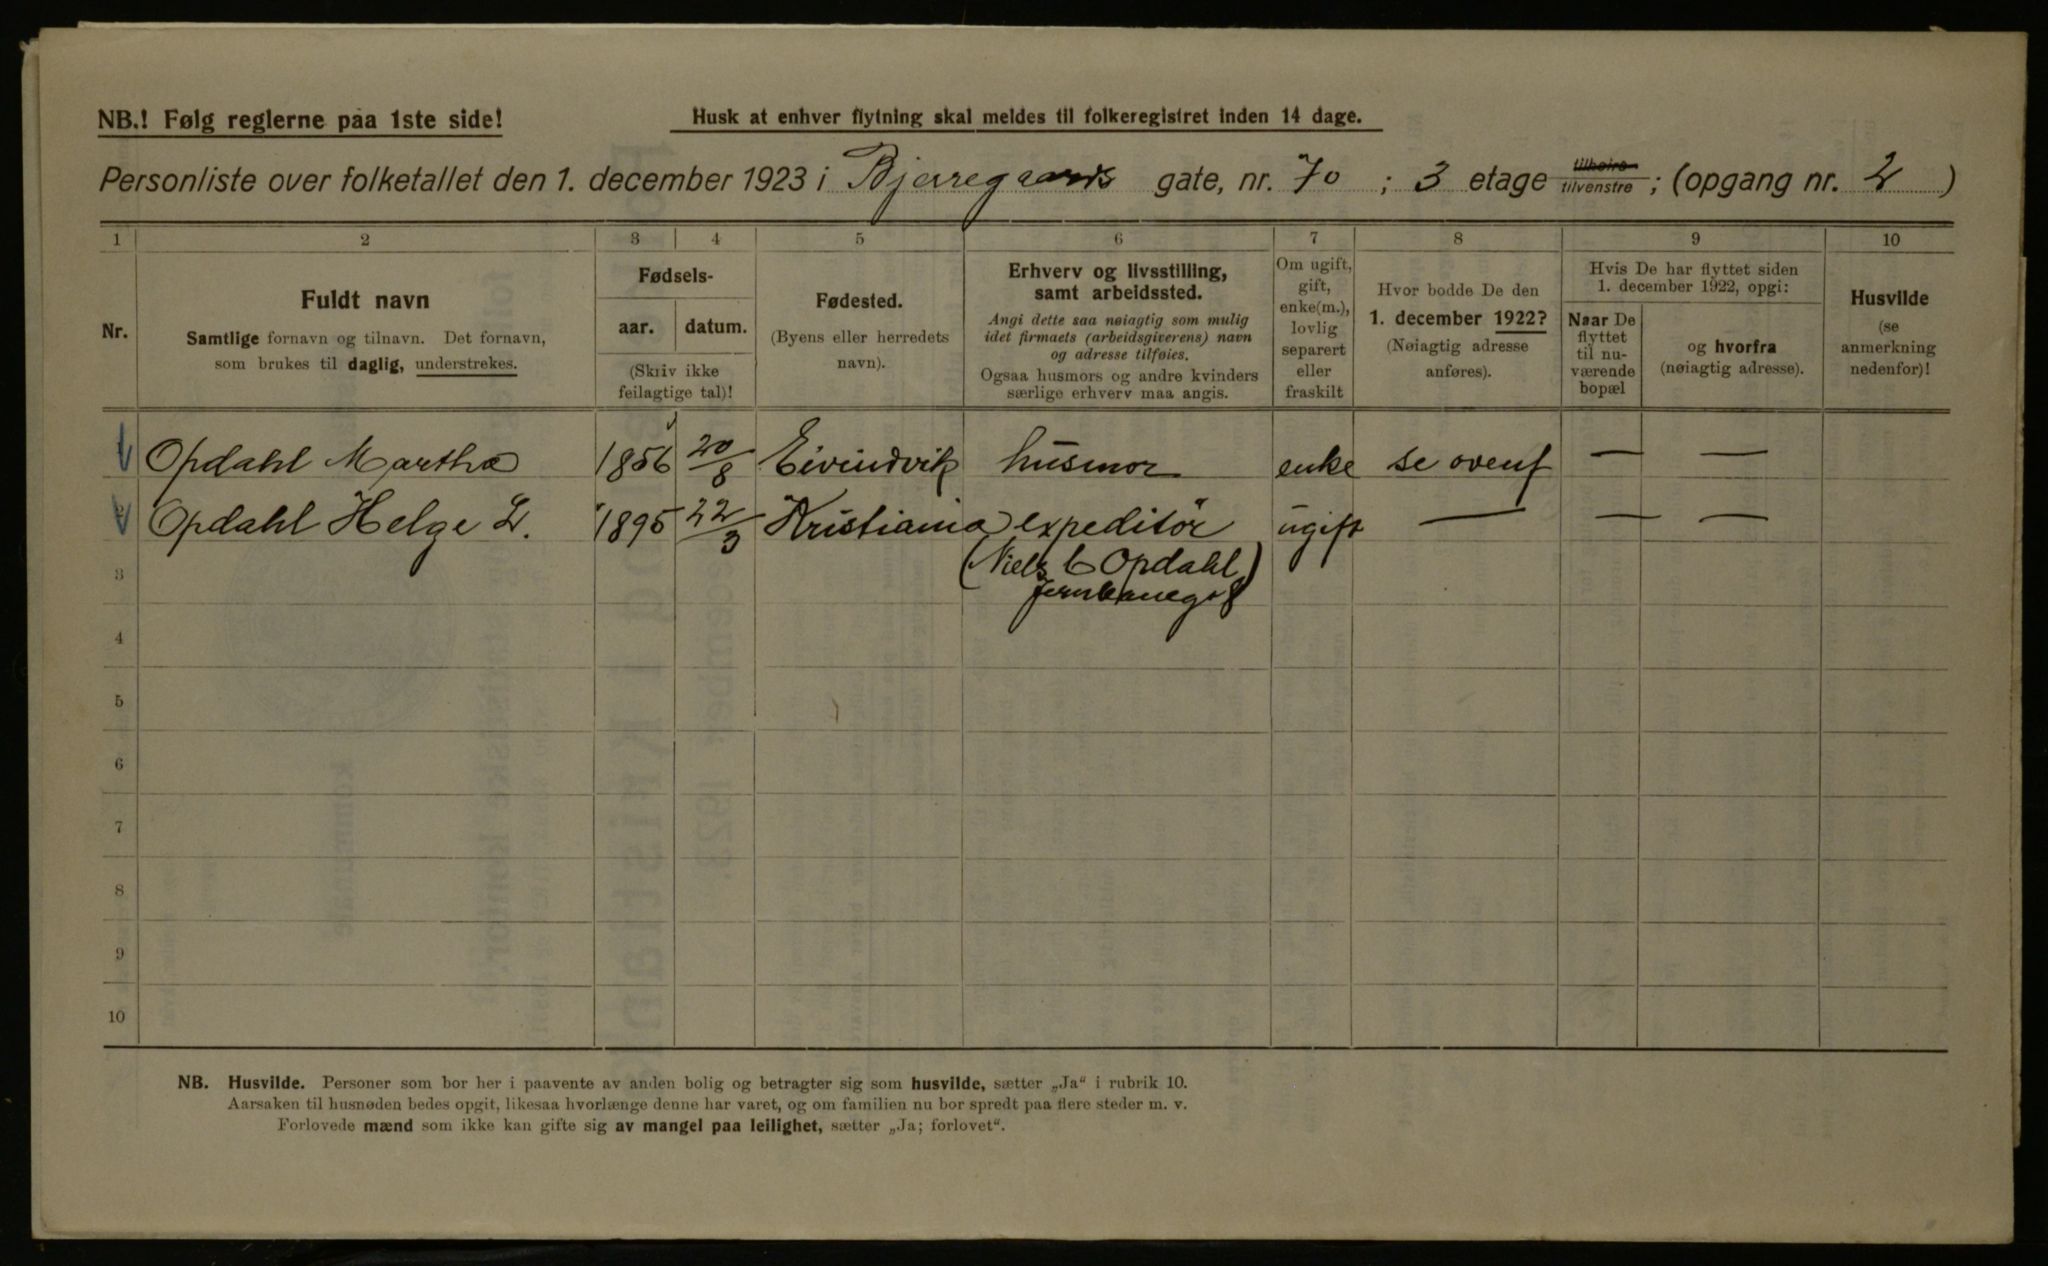 NB.! Følg reglerne paa 1ste side!
Husk at enhver flytning skal meldes til folkeregistret inden 14 dage.
Personliste over folketallet den 1. december 1923 i Bjerregaards gate, nr. 70 ; 3 etage tilhøire tilvenstre ; (opgang nr. 2 )
1 2 3 4 5 6 7 8 9 10
Nr.
Fuldt navn
Samtlige fornavn og tilnavn. Det fornavn,
som brukes til daglig, understrekes.
Fødsels-
aar. datum.
(Skriv ikke
feilagtige tal)!
Fødested.
(Byens eller herredets
navn).
Erhverv og livsstilling,
samt arbeidssted.
Angi dette saa nøiagtig som mulig
idet firmaets (arbeidsgiverens) navn
og adresse tilføies.
Ogsaa husmors og andre kvinders
særlige erhverv maa angis.
Om ugift,
gift,
enke(m.),
lovlig
separert
eller
fraskilt
Hvor bodde De den
1. december 1922?
(Nøiagtig adresse
anføres).
Hvis De har flyttet siden
1. december 1922, opgi:
Naar De
flyttet
til nu-
værende
bopæl
og hvorfra
(nøiagtig adresse).
Husvilde
(se
anmerkning
nedenfor)!
1 Opdahl Martha 1856 20/8 Eivindvik husmor enke se ovenf — —
2 Opdahl Helge L. 1895 22/3 Kristiania expeditør ugift — — —
(Niels C Opdahl)
3
Jernbaneg 8
4
5
6
7
8
9
10
NB. Husvilde. Personer som bor her i paavente av anden bolig og betragter sig som husvilde, sætter „Ja“ i rubrik 10.
Aarsaken til husnøden bedes opgit, likesaa hvorlænge denne har varet, og om familien nu bor spredt paa flere steder m. v.
Forlovede mænd som ikke kan gifte sig av mangel paa leilighet, sætter „Ja; forlovet“.